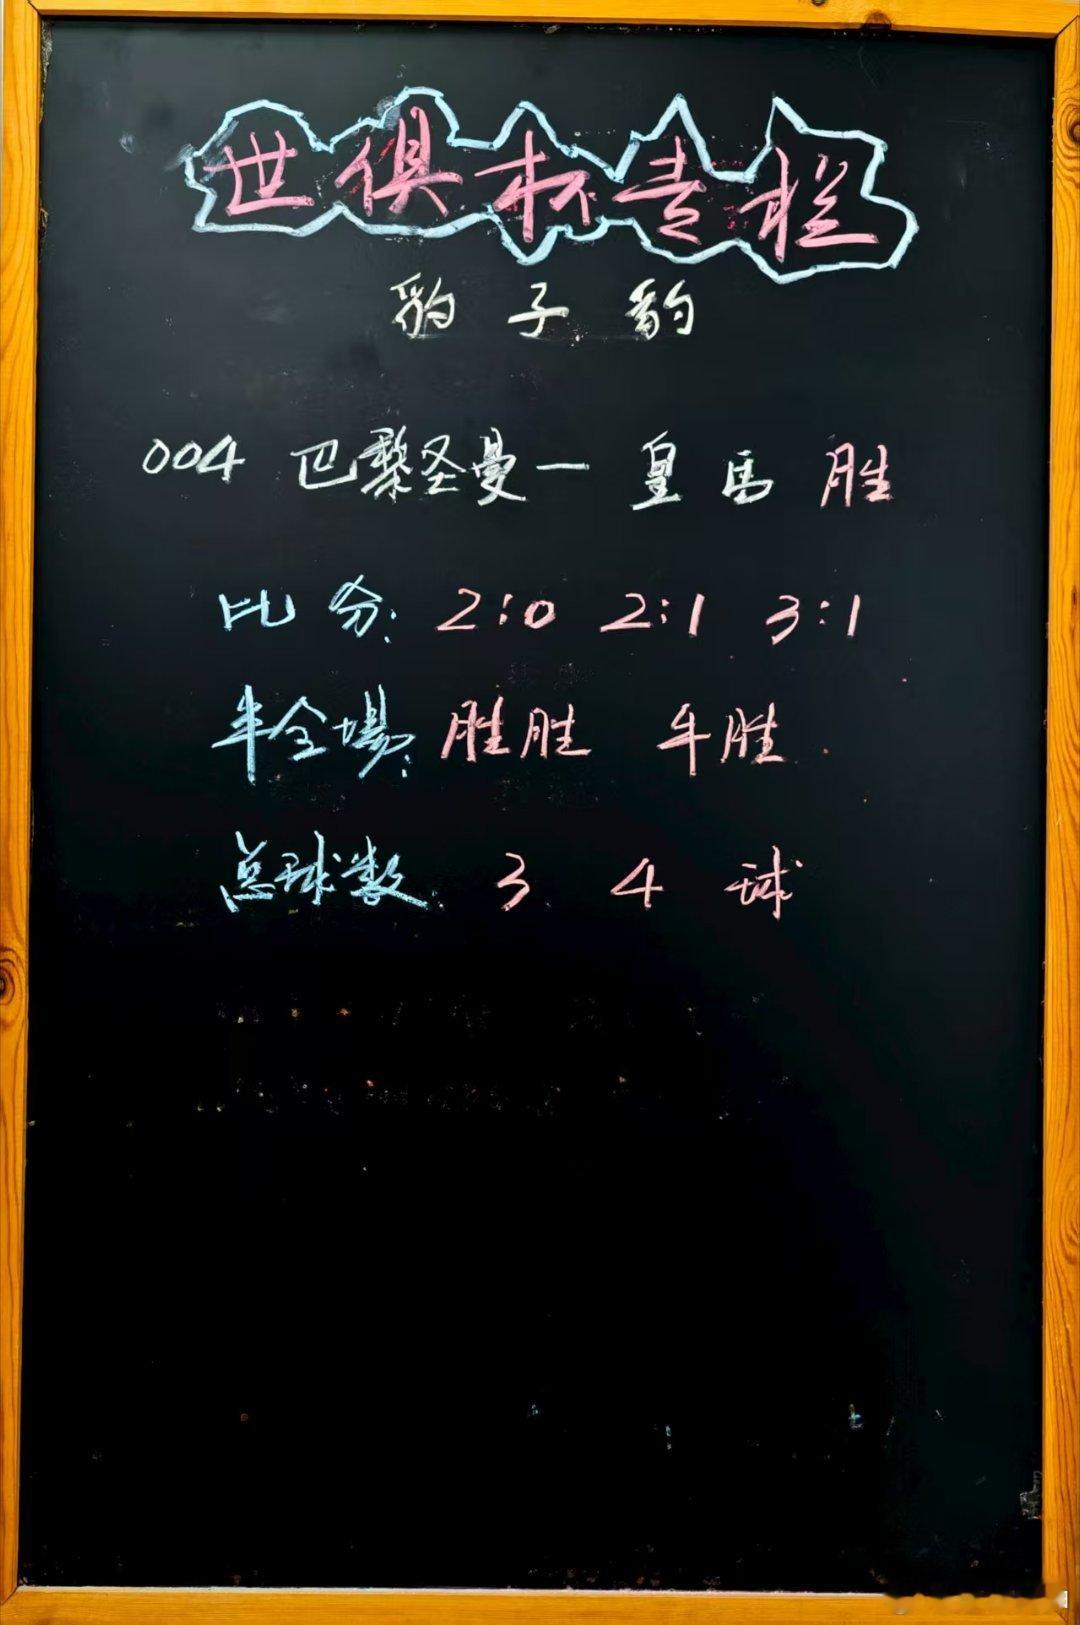 世俱杯专栏
豹子豹
004 巴黎圣曼一皇马 胜
比分: 2:0 2:1 3:1
半全場: 胜胜 平胜
总球数 3 4 球